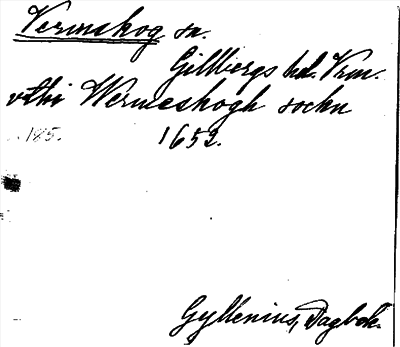 Värmskog sn.
Gillbergs hd. Vrm.
vthi Wermeskogh sochn
185. 1652.
Gyllenius, Dagbok.